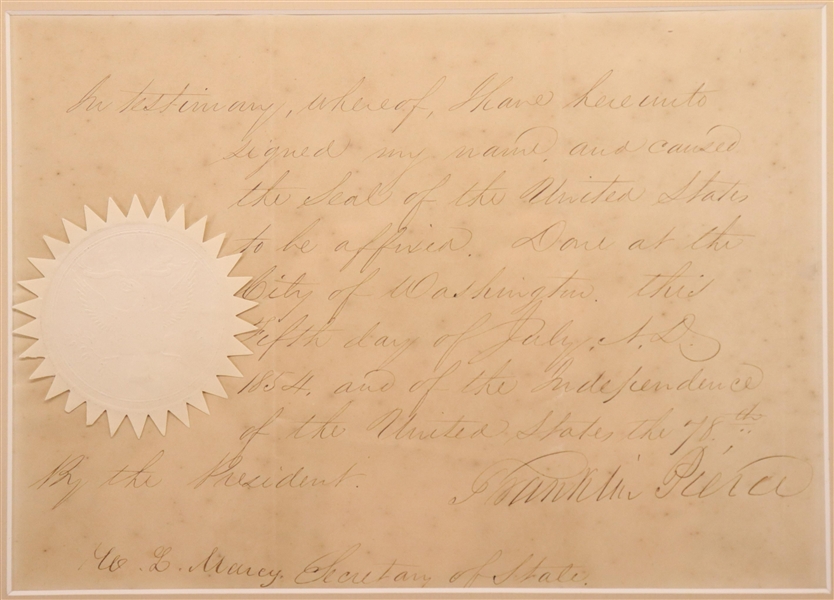 In testimony, whereof, I have hereunto
signed my name, and caused
the Seal of the United States
to be affixed. Done at the
City of Washington. this
Fifth day of July. A.D.
1854. and of the Independence
of the United States the 78.th
By the President. Franklin Pierce
W. L. Marcy. Secretary of State.